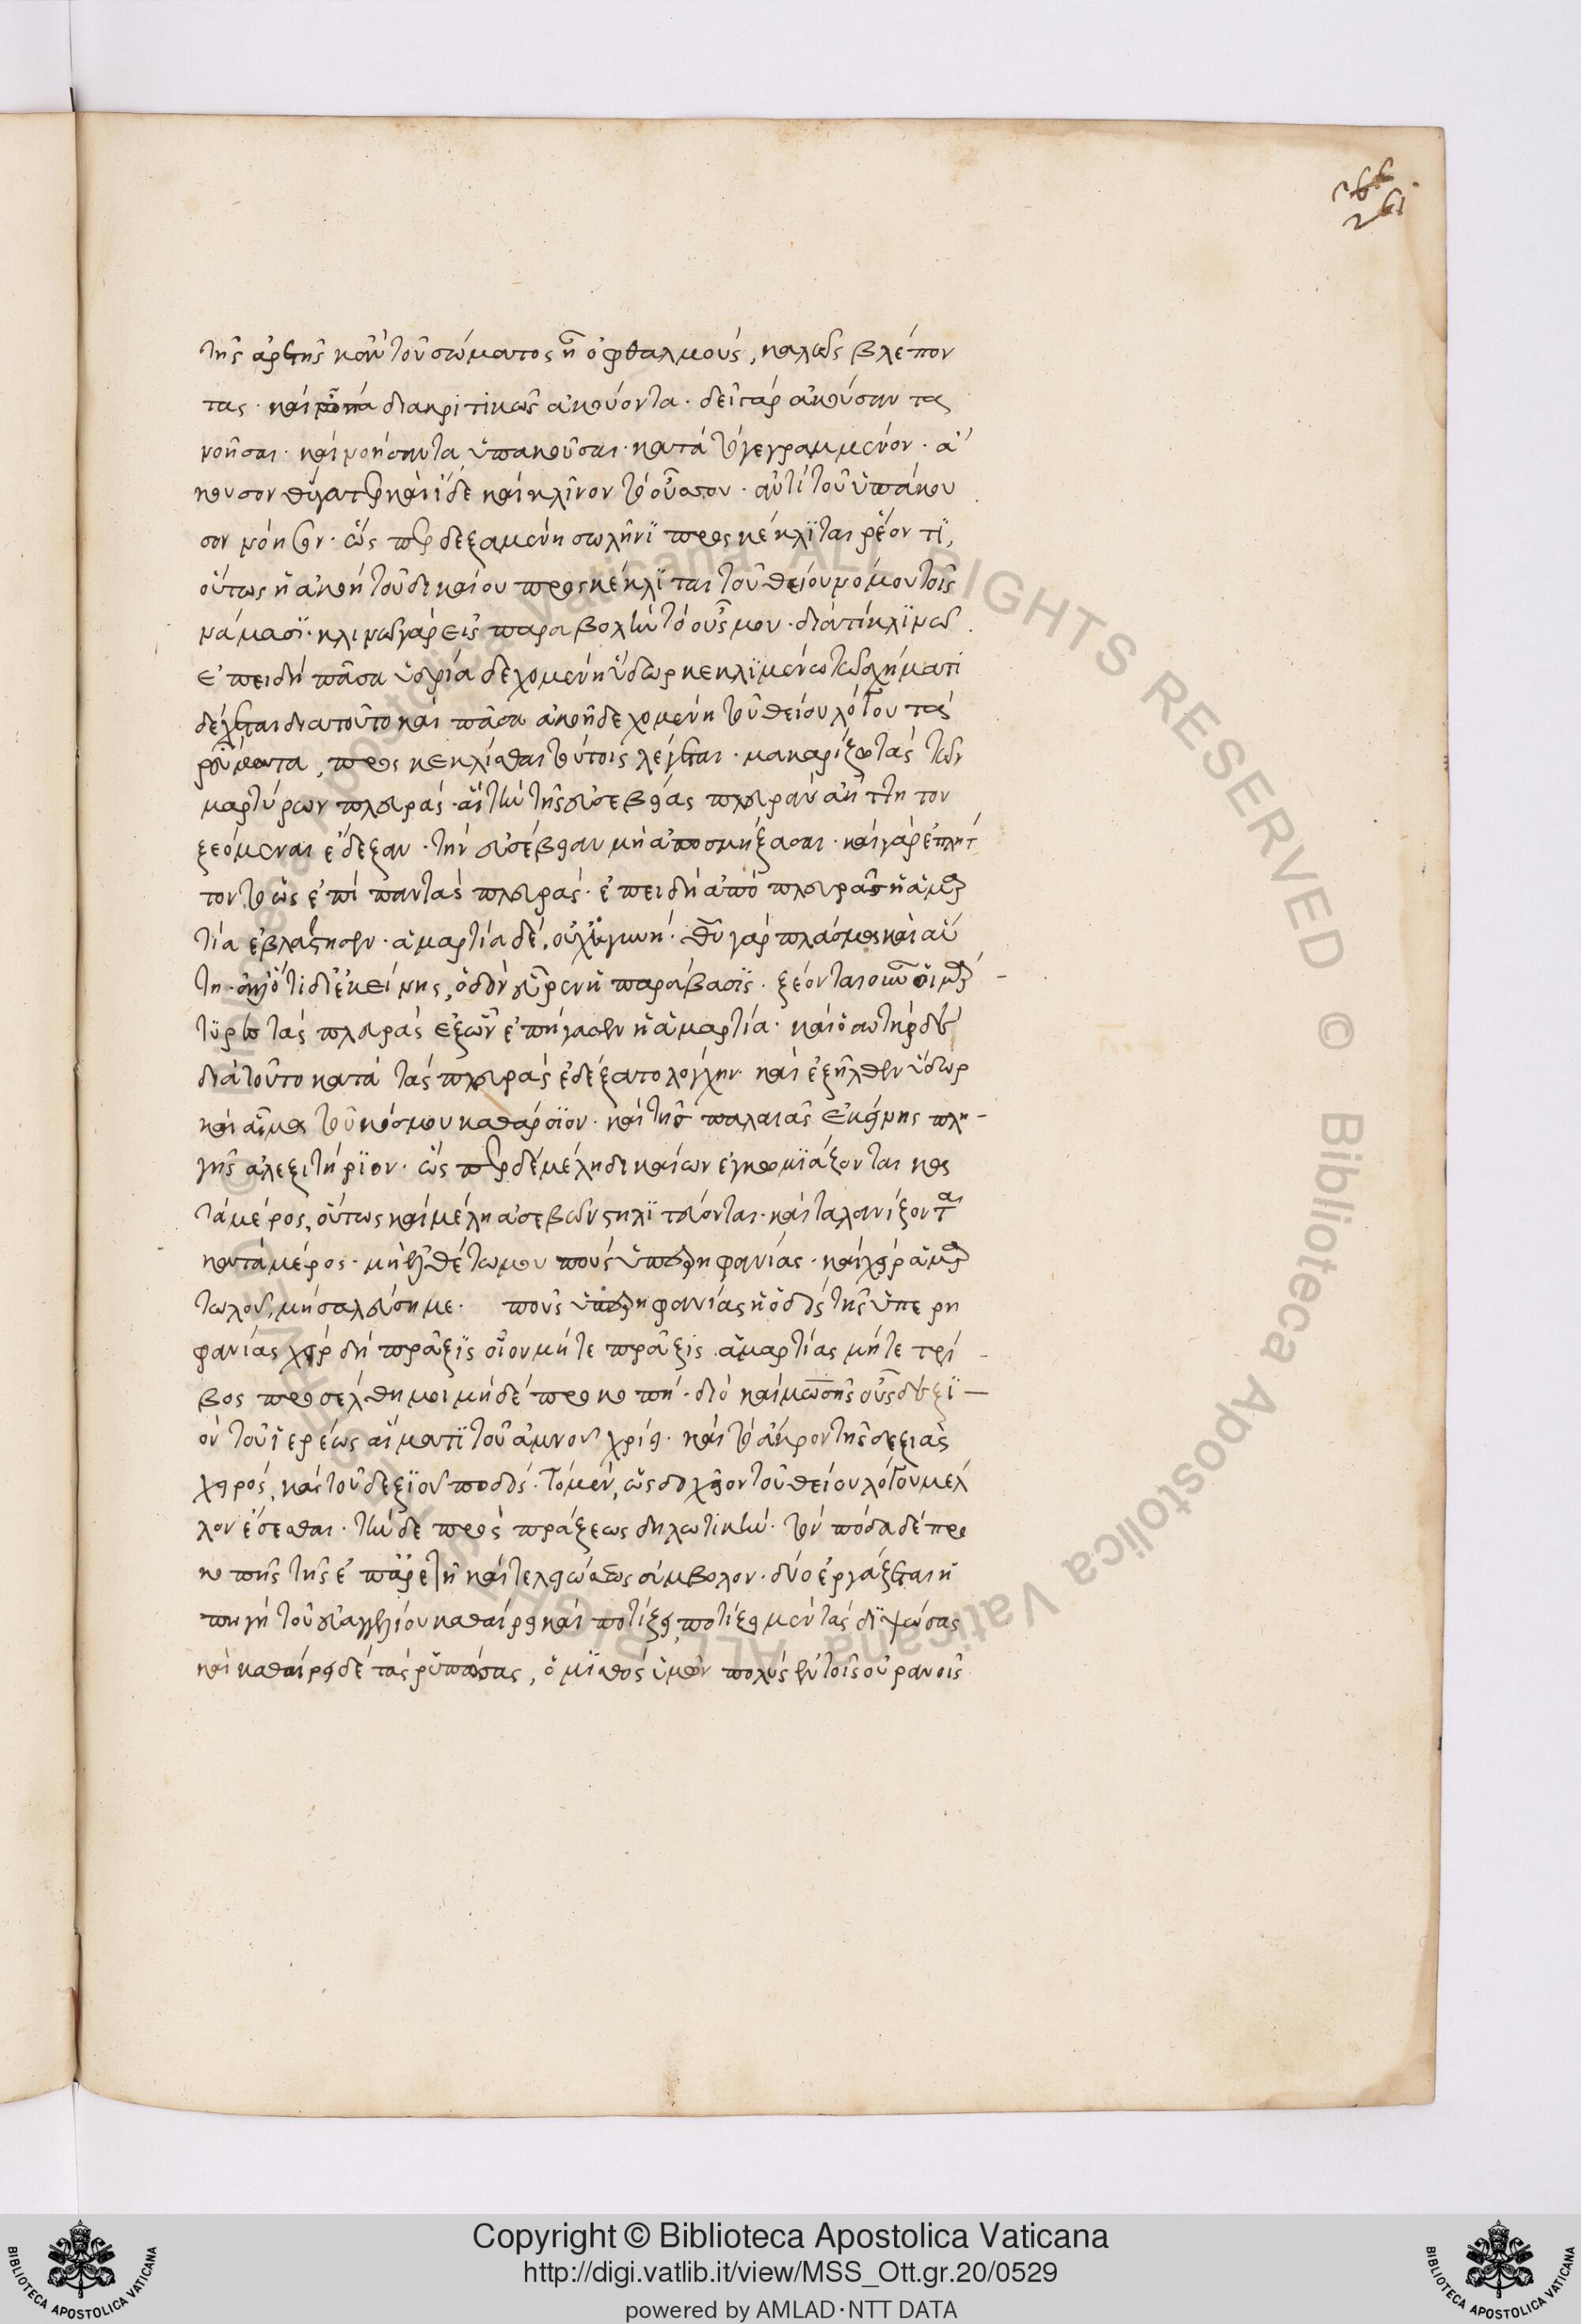 266
261
τῆς ἀρετῆς κἀν τοῦ σώματος ἢ ὀφθαλμούς, καλῶς βλέπον
τας· καὶ διακριτικῶς ἀκούοντα· δεῖ γὰρ ἀκούσαντας
νοῆσαι· καὶ νοήσαντα ὑπακοῦσαι· κατὰ τὸ γεγραμμένον· ἄ
κουσον θύγατερ καὶ ἴδε καὶ κλῖνον τὸ οὖς σου· ἀντὶ τοῦ ὑπάκου
σον νόησον· ὥσπερ δεξαμενὴ σωλῆνϊ προσκέκλϊται ῥέοντϊ,
οὕτως ἡ ἀκοὴ τοῦ δικαίου προσκέκλϊται τοῦ θείου νόμου τοῖς
νάμασϊ· κλινῶ γὰρ εἰς παραβολὴν τὸ οὖς μου· διατί κλϊνῶ
ἐπειδὴ πᾶσα ὑδρία δεχομένη ὕδωρ κεκλϊμένω τῶ σχήματι
δέχεται διατοῦτο καὶ πᾶσα ἀκοὴ δεχομένη τοῦ θείου λόγου τὰ
ῥεύματα, προσκεκλίσθαι τούτοις λέγεται· μακαρίζω τὰς τῶν
μαρτύρων πλευράς· αἳ τὴν τῆς εὐσεβείας πλευρὰν ἀήττητον
ξεόμεναι ἔδεξαν· τὴν εὐσέβειαν μὴ ἀποσμήξασαι· καὶ γὰρ ἐπλητ
τον τοὺς ἐπὶ πάντας πλευράς· ἐπειδὴ ἀπὸ πλευρᾶς ἡ ἁμαρ
τία ἐβλάστησεν· ἁμαρτία δέ, οὐχ ἡ γυνή· θεοῦ γὰρ πλάσμα καὶ αὕ
τη· ἀλλ' ὅτι δι' ἐκείνης, ὁδὸν εὗρεν ἡ παράβασϊς· ξέονται οὖν οἱ μάρ
τϋρες τὰς πλευρὰς ἐξ ὧν ἐπήγασεν ἡ ἁμαρτία· καὶ ὁ σωτὴρ δὲ
διὰ τοῦτο κατὰ τὰς πλευρὰς ἐδέξατο λόγχην· καὶ ἐξῆλθεν ὕδωρ
καὶ αἷμα τοῦ κόσμου καθάρσϊον· καὶ τῆς παλαιᾶς ἐκείνης πλη
γῆς ἀλεξιτήρϊον· ὥσπερ δὲ μέλη δικαίων ἐγκωμϊάζονται κα
τὰ μέρος, οὕτως καὶ μέλη ἀσεβῶν στηλϊτεύονται· καὶ ταλανίζονται
κατὰ μέρος· μὴ ἐλθέτω μου ποὺς ὑπερηφανίας· καὶ χεὶρ ἁμαρ
τωλοῦ, μὴ σαλεύση με· ποὺς ὑπερηφανίας ἡ ὁδὸς τῆς ὑπερη
φανίας χεὶρ δὴ πρᾶξϊς οἷον μήτε πρᾶξις ἁμαρτίας μήτε τρί
βος προσέλθη μοι μὴ δὲ προκοπή· διὸ καὶ μωσῆς οὖς δεξϊ
ὸν τοῦ ἱερέως αἵματϊ τοῦ ἀμνοῦ χρίει· καὶ τὸ ἄκρον τῆς δεξιᾶς
χειρός, καὶ τοῦ δεξϊοῦ ποδός· τὸ μέν, ὡς δοχεῖον τοῦ θείου λόγου μέλ
λον ἔσεσθαι· τὴν δὲ πρὸς πράξεως δηλωτικήν· τὸν πόδα δὲ προ
κοπῆς τῆς ἐπ' ἀρετῆ καὶ τελειώσεως σύμβολον· δύο ἐργάζεται ἡ
πηγὴ τοῦ εὐαγγελίου καθαίρει καὶ ποτίζει, ποτίζει μὲν τὰς διψώσας
καὶ καθαίρει δὲ τὰς ῥυπώσας, ὁ μϊσθὸς ὑμῶν πολὺς ἐν τοῖς οὐρανοῖς
DIGITAL
Biblioteca Apostolica Vaticana ALL RIGHTS RESERVED © Biblioteca Apostolica Vaticana ALL RIGHTS RESERVED ©
Copyright © Biblioteca Apostolica Vaticana
http://digi.vatlib.it/view/MSS_Ott.gr.20/0529
powered by AMLAD·NTT DATA
BIBLIOTECA APOSTOLICA VATICANA
BIBLIOTECA APOSTOLICA VATICANA